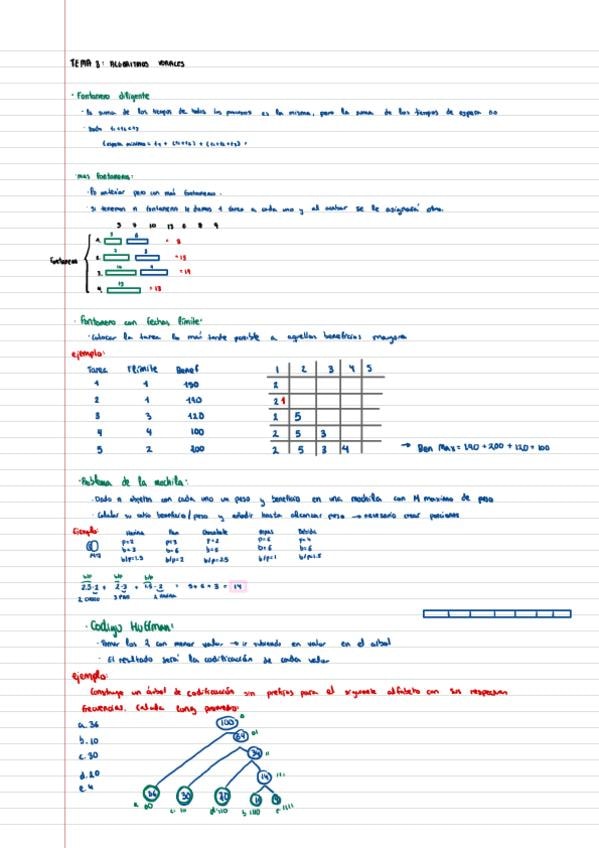 TEMA 3: ALGORITMOS VORACES
· Fontanero diligente
- la suma de los tiempos de todos los procesos es la misma, pero la suma de los tiempos de espera no
· mas fontaneros:
- Lo anterior pero con mas fontaneros.
- si tenemos n fontaneros le damos 1 tarea a cada uno y al acabar se le asignará otra.
Fontaneros
· Fontanero con fechas límite:
- Colocar la tarea lo mas tarde posible a aquellas beneficios mayores
ejemplo:
Tarea Flimite Benef
1 1 190
2 1 190
3 3 120
4 4 100
5 2 200
1 2 3 4 5
2
2 1
2 5
2 5 3
2 5 3 4
→ Ben Max = 190 + 200 + 120 + 100
· Problema de la mochila:
- Dado n objetos con cada uno un peso y beneficio en una mochila con M maximo de peso
- Calcular su ratio beneficio/peso y añadir hasta alcanzar peso → necesario crear porciones
Ejemplo:
Harina Pan Chocolate
p=2 p=3 p=2 p=6 p=4
b=3 b=6 b=5 b=6 b=6
b/p=1.5 b/p=2 b/p=2.5 b/p=1 b/p=1.5
2.5·2 + 2·3 + 1.5·2 = 5+6+3 = 14
· Codigo Huffman:
- Tomar los 2 con menor valor → ir subiendo en valor en el arbol
- El resultado será la codificación de cada valor
ejemplo:
Construye un árbol de codificación sin prefijos para el siguiente alfabeto con sus respectivas
frecuencias. Calcula long promedio:
a. 36
b. 10
c. 30
d. 20
e. 4
100
64
34
14
36 30 20 10 4